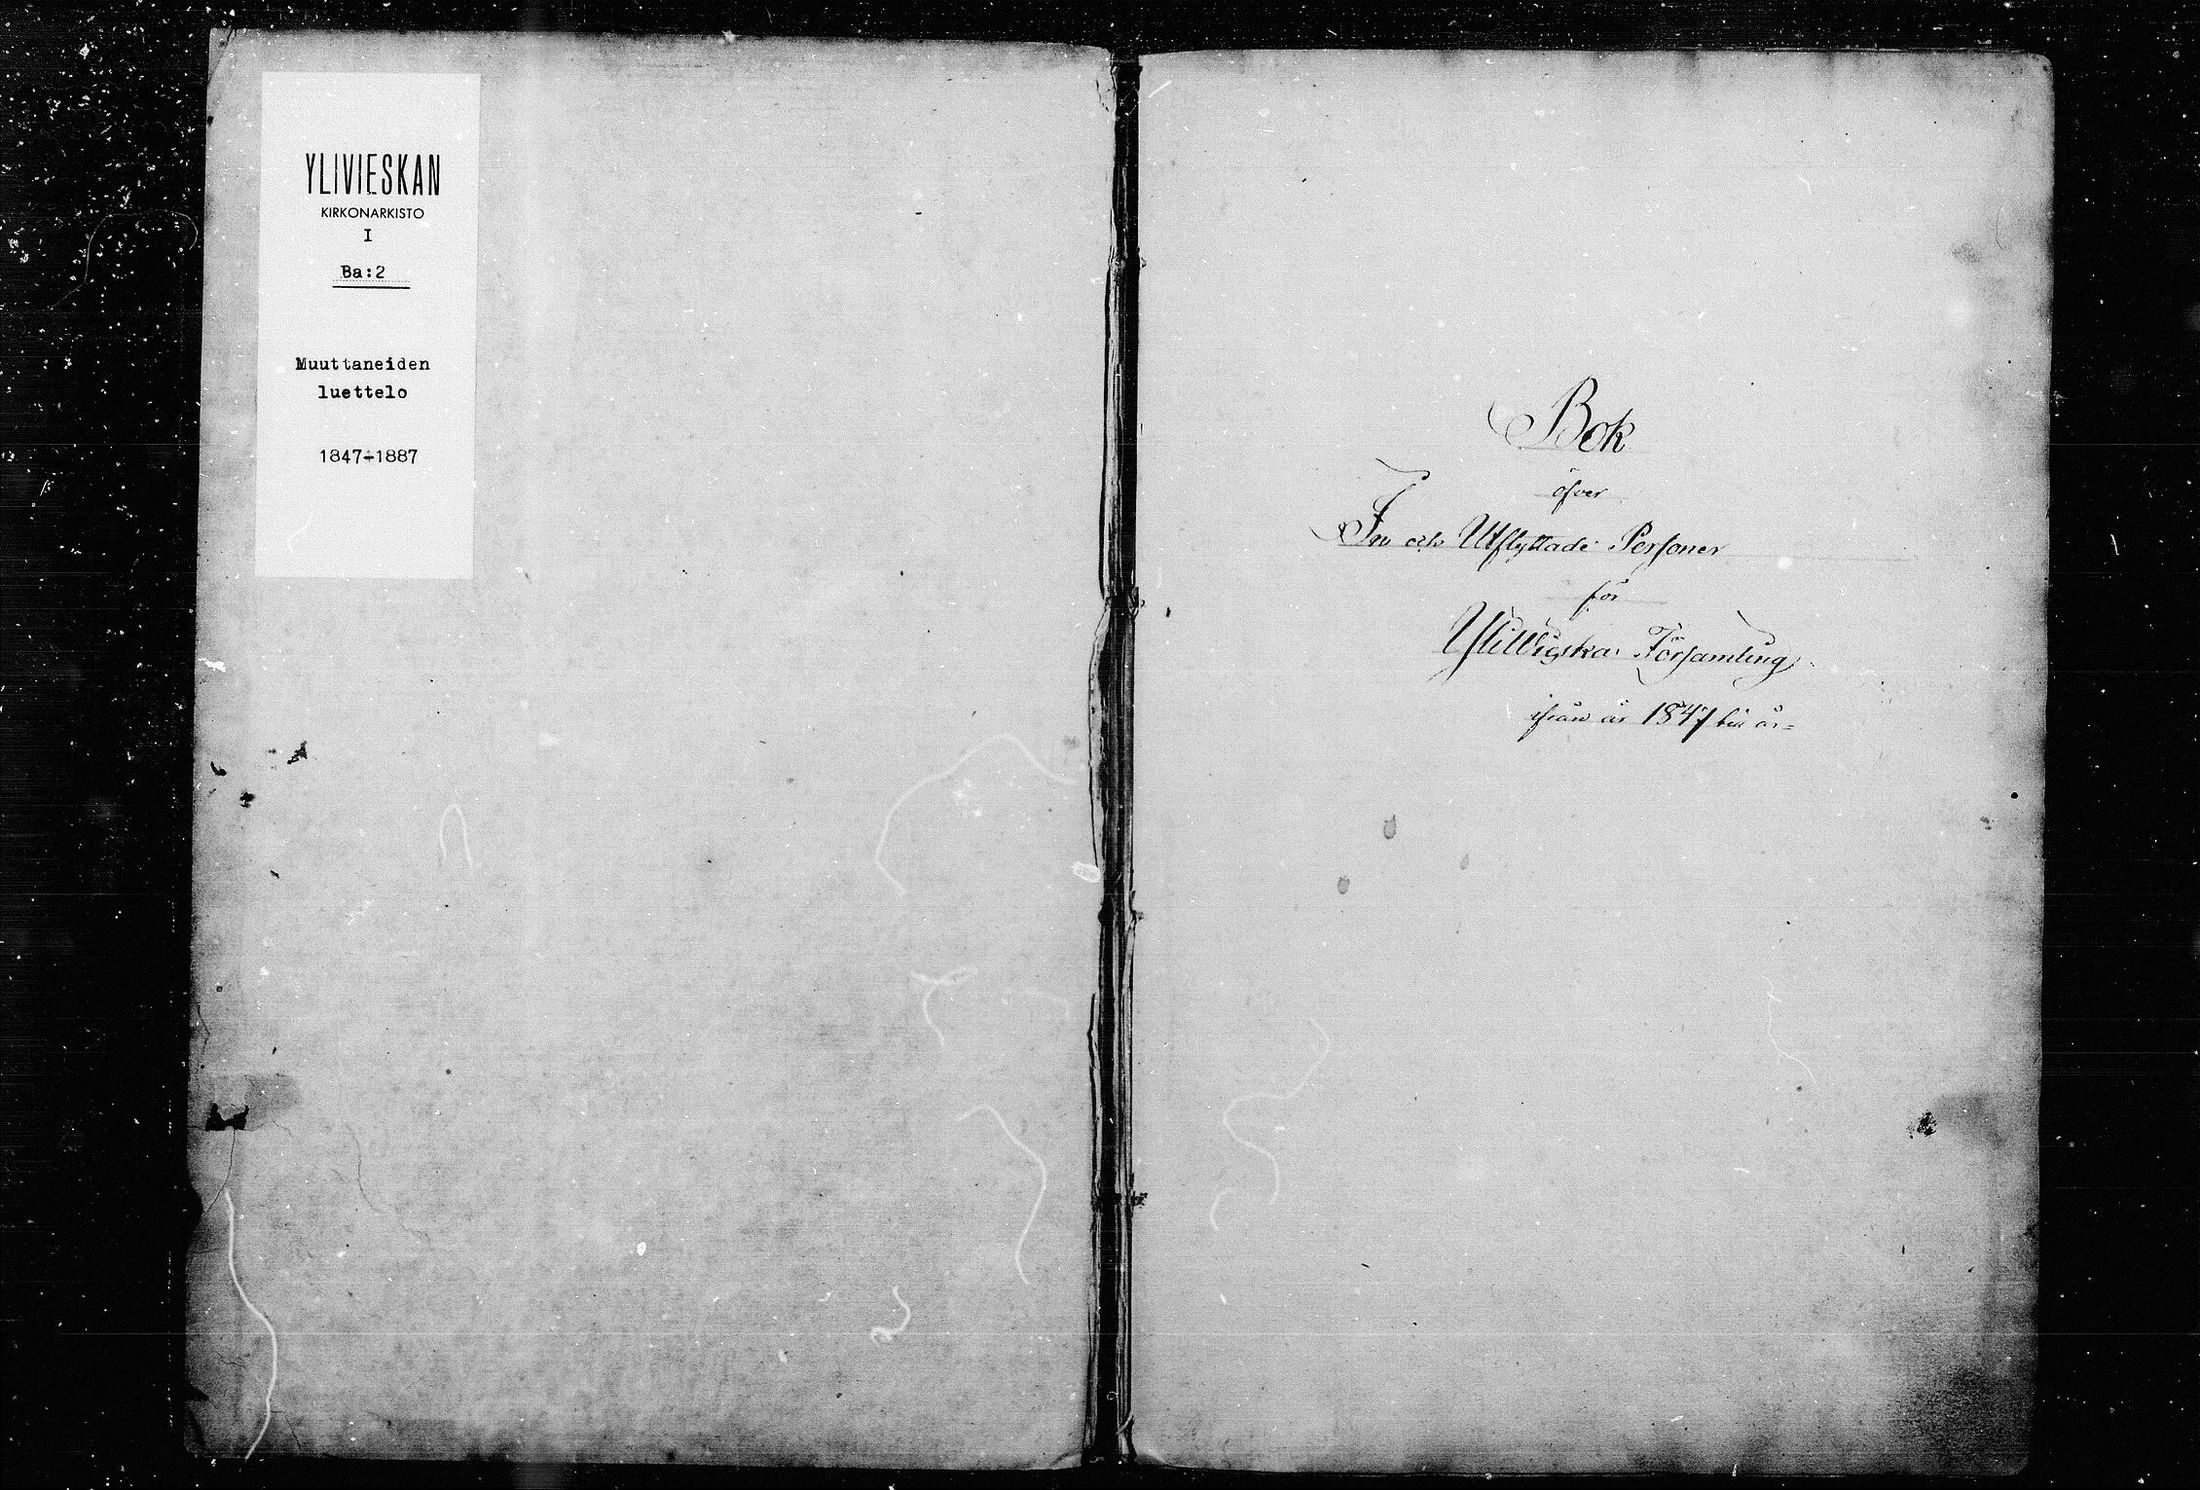 YLIVIESKAN
KIRKONARKISTO
I
Ba:2
Muuttaneiden
luettelo
1847-1887
Bok
öfver
In och Utflyttade Personer
för
Ylivieska Församling
ifrån år 1847 till år=